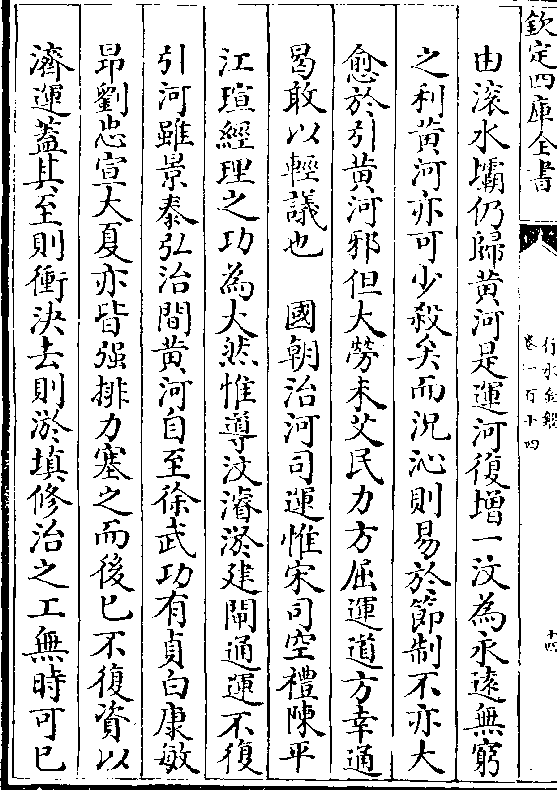 欽定四庫全書
行水金鑑
卷一百十四
十四
由滚水壩仍歸黄河是運河復增一汶為永遠無窮
之利黄河亦可少殺矣而況沁則易於節制不亦大
愈於引黄河邪但大勞未艾民力方屈運道方幸通
曷敢以輕議也　國朝治河司運惟宋司空禮陳平
江瑄經理之功為大然惟導汶濬淤建閘通運不復
引河雖景泰弘治間黄河自至徐武功有貞白康敏
昻劉忠宣大夏亦皆强排力塞之而後已不復資以
濟運蓋其至則衝決去則淤填修治之工無時可已